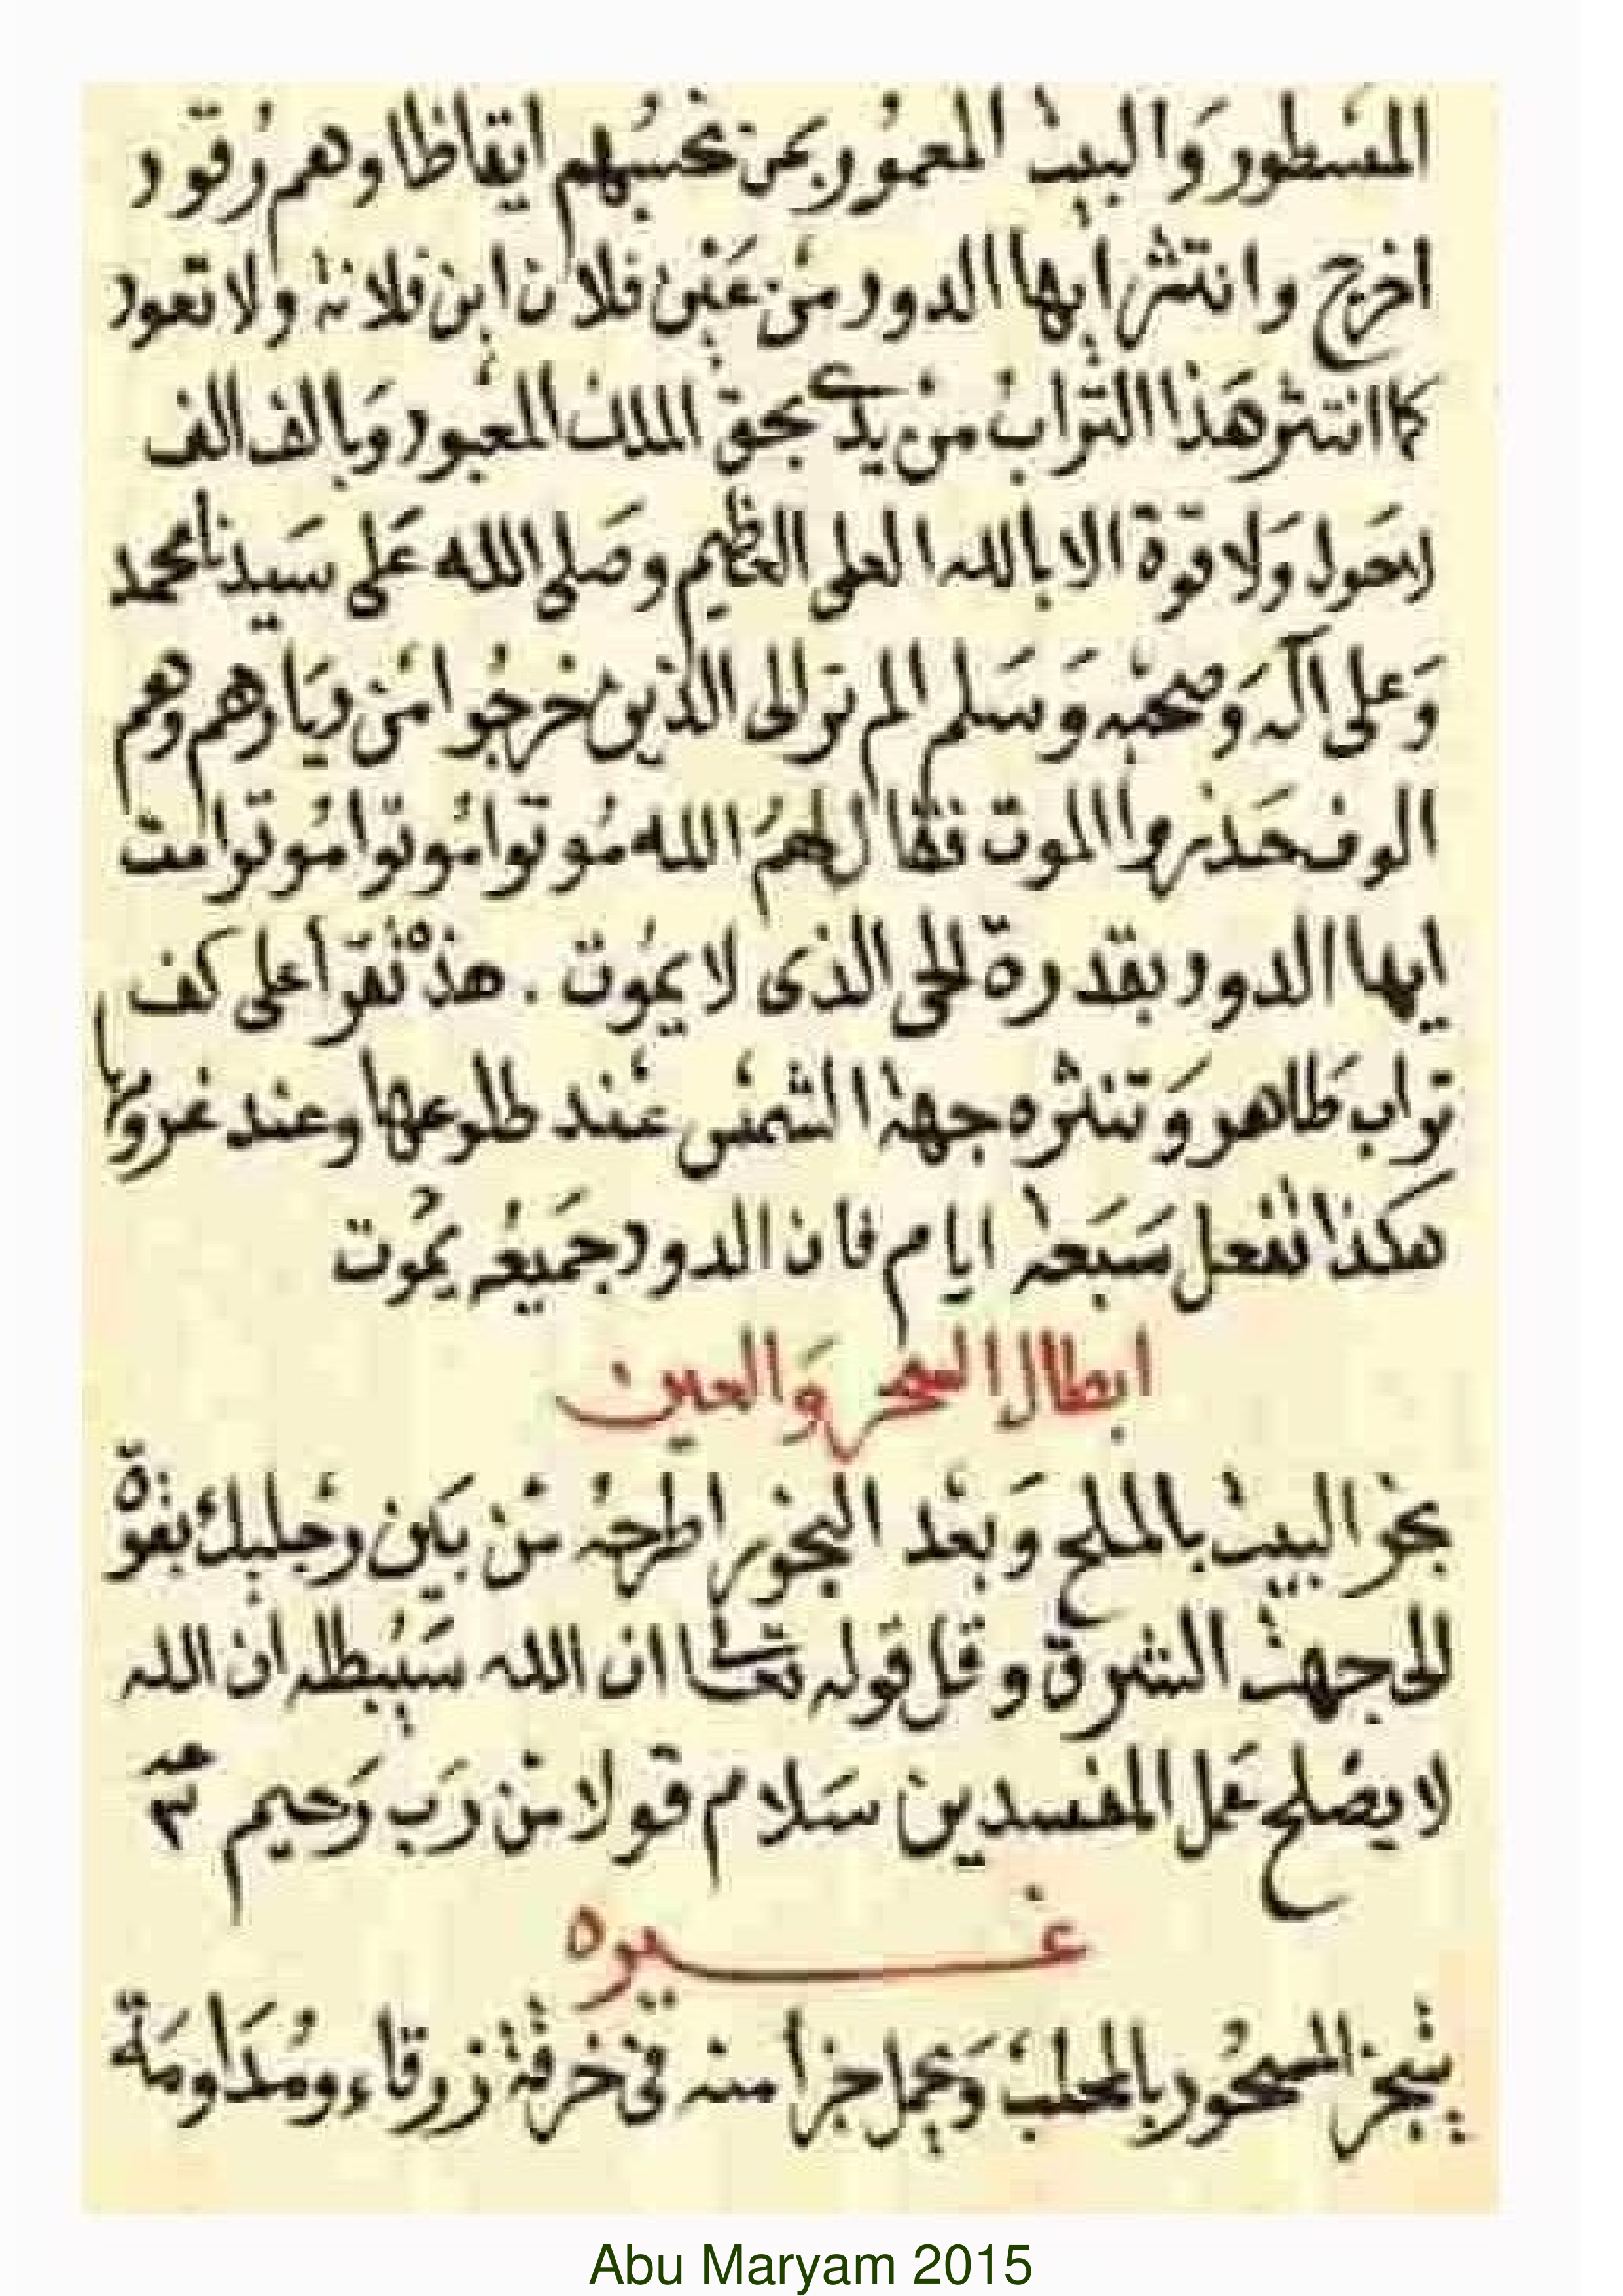 المسطور وَالبيت المعمُور بمن تحسبُهم ايقاظا وهم رُقود
اخرج وانتثر ايها الدود منْ عَيْن فلان ابن فلانة ولا تعود
كما انتثر هَذا التراب من يدي بحق الملك المعبود وَبالف الف
لاحَول وَلا قوة الا بالله العلى العظيم وصَلى الله عَلى سَيدنا محمد
وَعلى آله وَصحبه وَسَلم الم تر الى الذين خرجُوا منْ ديَارهم وهم
الوف حَذر الموت فقال لهمُ الله مُوتوا مُوتوا مُوتوا مت
ايها الدود بقدرة الحى الذى لا يمُوت . هذه تقرأ على كف
تراب طَاهر وَتنثره جهة الشمس عند طلوعها وعند غروبها
هكذا تفعل سَبَعة ايام فان الدود جَميعُه يمُوت
ابطال السحر وَالعين
بخر البيت بالملح وَبعْد البخُور اطرحُه منْ بَين رجليك بقوّة
الى جهت الشرق وقل قوله تعالى ان الله سَيُبطله ان الله
لا يصْلح عَمل المفسدين سَلام قولا منْ رَب رَحيم ٣
غيره
يتبخر المسحُور بالمحلبْ وَيحمل جزأ منه في خرقة زرقاء ومُدَاومَة
Abu Maryam 2015